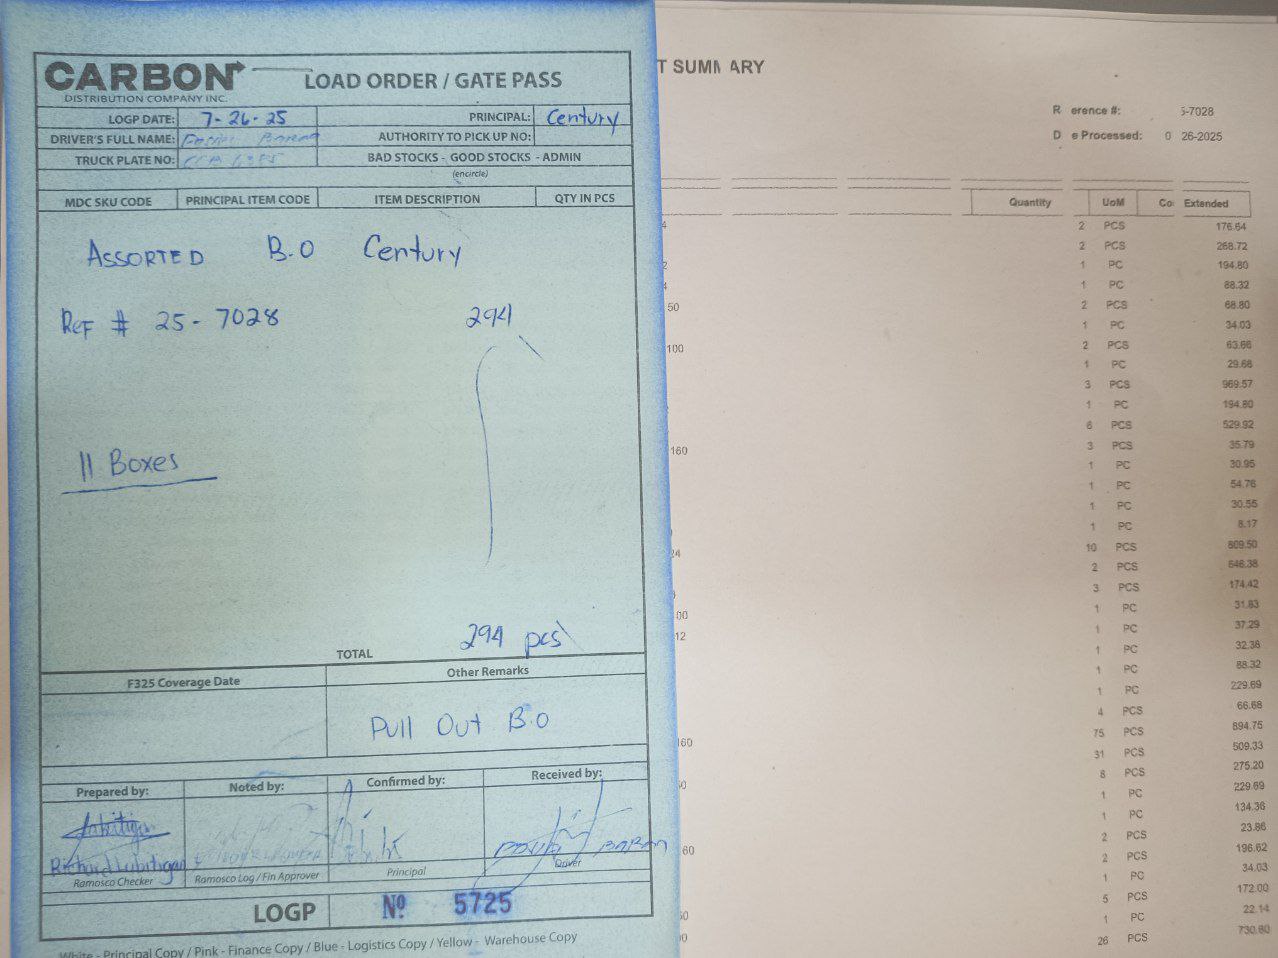 CARBON
DISTRIBUTION COMPANY INC.
LOAD ORDER / GATE PASS
LOGP DATE: 7-26-25 PRINCIPAL: Century
DRIVER'S FULL NAME: AUTHORITY TO PICK UP NO:
TRUCK PLATE NO: BAD STOCKS - GOOD STOCKS - ADMIN
(encircle)
MDC SKU CODE PRINCIPAL ITEM CODE ITEM DESCRIPTION QTY IN PCS
ASSORTED B.O Century
Ref # 25-7028 294
11 Boxes
294 pcs
TOTAL
F325 Coverage Date Other Remarks
Pull Out B.O
Prepared by: Noted by: Confirmed by: Received by:
Richard Lubitigan
Ramosco Checker Ramosco Log / Fin Approver Principal Driver
LOGP Nº 5725
White - Principal Copy / Pink - Finance Copy / Blue - Logistics Copy / Yellow - Warehouse Copy
T SUMMARY
Reference #: 5-7028
D e Processed: 0 26-2025
Quantity UoM Co Extended
4 2 PCS 176.64
2 PCS 268.72
2 1 PC 194.80
4 1 PC 88.32
50 2 PCS 68.80
1 PC 34.03
100 2 PCS 63.66
1 PC 29.68
3 PCS 969.57
1 PC 194.80
6 PCS 529.92
160 3 PCS 35.79
1 PC 30.95
1 PC 54.76
1 PC 30.55
1 PC 8.17
24 10 PCS 809.50
2 PCS 646.38
3 PCS 174.42
00 1 PC 31.83
12 1 PC 37.29
1 PC 32.38
1 PC 88.32
1 PC 229.69
4 PCS 66.68
160 75 PCS 894.75
31 PCS 509.33
0 8 PCS 275.20
1 PC 229.69
1 PC 134.36
60 2 PCS 23.86
2 PCS 196.62
1 PC 34.03
50 5 PCS 172.00
1 PC 22.14
00 26 PCS 730.60